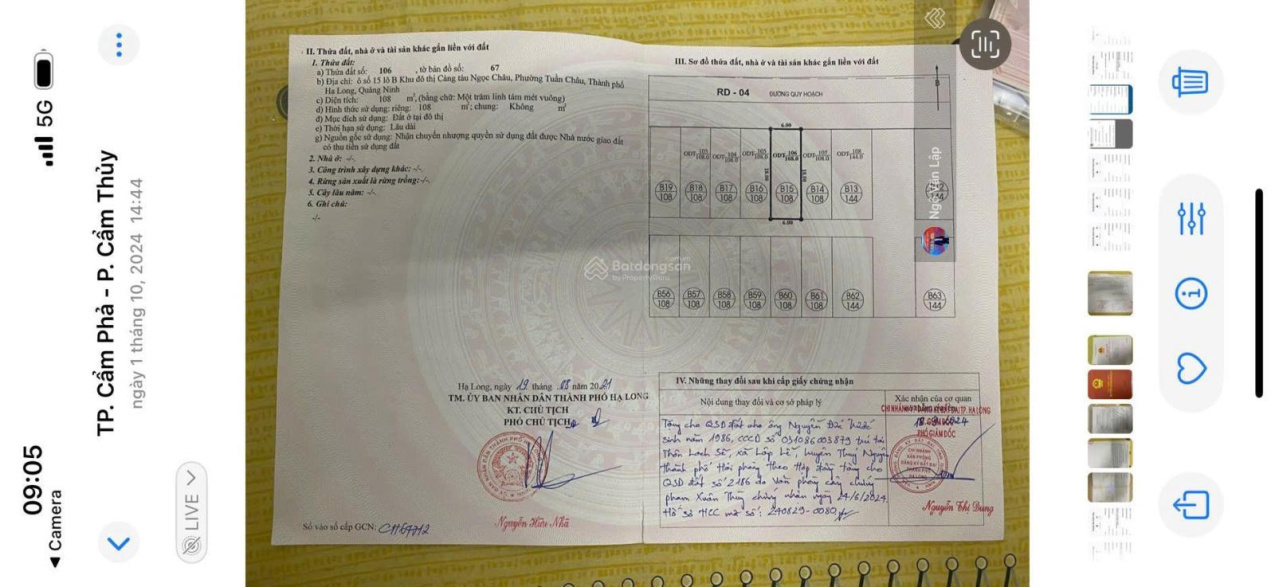 09:05
5G
Camera
TP. Cẩm Phả - P. Cẩm Thủy
ngày 1 tháng 10, 2024 14:44
LIVE
II. Thửa đất, nhà ở và tài sản khác gắn liền với đất
1. Thửa đất:
a) Thửa đất số: 106 , tờ bản đồ số: 67
b) Địa chỉ: ô số 15 lô B Khu đô thị Cảng tàu Ngọc Châu, Phường Tuần Châu, Thành phố
Hạ Long, Quảng Ninh
c) Diện tích: 108 m², (bằng chữ: Một trăm linh tám mét vuông)
d) Hình thức sử dụng: riêng: 108 m²; chung: Không m²
đ) Mục đích sử dụng: Đất ở tại đô thị
e) Thời hạn sử dụng: Lâu dài
g) Nguồn gốc sử dụng: Nhận chuyển nhượng quyền sử dụng đất được Nhà nước giao đất
có thu tiền sử dụng đất
2. Nhà ở: -/-
3. Công trình xây dựng khác: -/-
4. Rừng sản xuất là rừng trồng: -/-
5. Cây lâu năm: -/-
6. Ghi chú:
-/-
Hạ Long, ngày 19 tháng 08 năm 2021
TM. ỦY BAN NHÂN DÂN THÀNH PHỐ HẠ LONG
KT. CHỦ TỊCH
PHÓ CHỦ TỊCH
Nguyễn Hữu Nhã
Số vào sổ cấp GCN:
III. Sơ đồ thửa đất, nhà ở và tài sản khác gắn liền với đất
RD - 04 ĐƯỜNG QUY HOẠCH
6.00
ODT 106 108.0
18.00 18.00
B19 B18 B17 B16 B15 B14 B13
108 108 108 108 108 108 144 144
6.00
B56 B57 B58 B59 B60 B61 B62 B63
108 108 108 108 108 108 144 144
Ngô Văn Lập
Batdongsan
by PropertyGuru
IV. Những thay đổi sau khi cấp giấy chứng nhận
Nội dung thay đổi và cơ sở pháp lý
Xác nhận của cơ quan
Tặng cho QSD đất cho ông Nguyễn Đức
Sinh năm 1986, CCCD số 031086003879 tại
Thôn Lạch Sẽ, xã Lập Lễ, huyện Thuỷ Nguyên
thành phố Hải phòng theo Hợp đồng tặng cho
QSD đất số 2186 do Văn phòng công chứng
phạm Xuân Thủy chứng nhận ngày 24/6/2024
Hồ sơ HCC mã số: 240829-0080
PHÓ GIÁM ĐỐC
Nguyễn Thị Dung